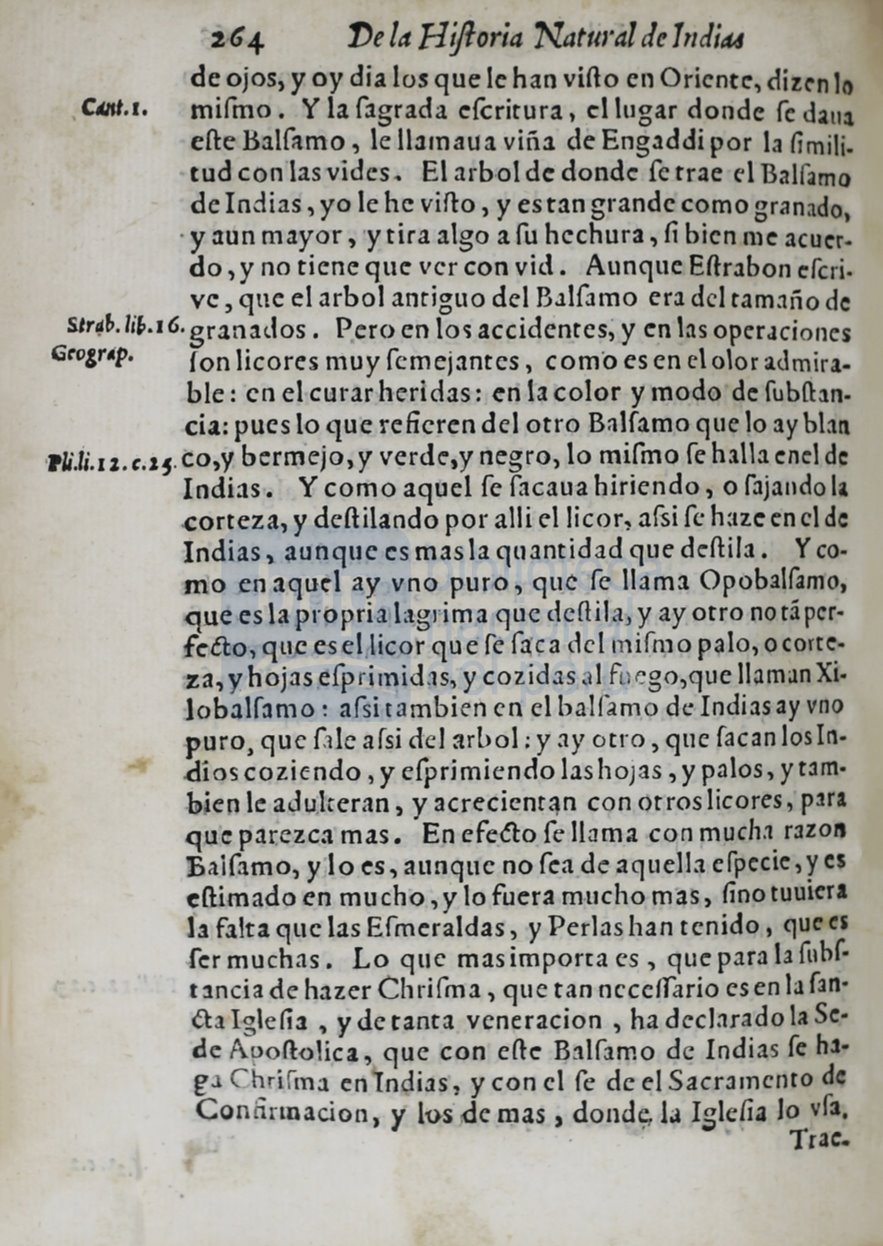 264 De la Hiſtoria Natural de Indias
de ojos, y oy dia los que le han viſto en Oriente, dizen lo
Cant.1.
miſmo. Y la ſagrada eſcritura, el lugar donde ſe daua
eſte Balſamo, le llamaua viña de Engaddi por la ſimili-
tud con las vides. El arbol de donde ſe trae el Balſamo
de Indias, yo le he viſto, y es tan grande como granado,
y aun mayor, y tira algo a ſu hechura, ſi bien me acuer-
do, y no tiene que ver con vid. Aunque Eſtrabon eſcri-
ve, que el arbol antiguo del Balſamo era del tamaño de
Strab. lib.16.
granados. Pero en los accidentes, y en las operaciones
Geograp.
ſon licores muy ſemejantes, como es en el olor admira-
ble: en el curar heridas: en la color y modo de ſubſtan-
cia: pues lo que refieren del otro Balſamo que lo ay blan
Pli.li.12.c.25.
co,y bermejo, y verde,y negro, lo miſmo ſe halla enel de
Indias. Y como aquel ſe ſacaua hiriendo, o ſajando la
corteza, y deſtilando por alli el licor, aſsi ſe haze en el de
Indias, aunque es mas la quantidad que deſtila. Y co-
mo en aquel ay vno puro, que ſe llama Opobalſamo,
que es la propria lagrima que deſtila, y ay otro no tá per-
fecto, que es el licor que ſe ſaca del miſmo palo, o corte-
za, y hojas eſprimidas, y cozidas al fuego,que llaman Xi-
lobalſamo: aſsi tambien en el balſamo de Indias ay vno
puro, que ſale aſsi del arbol: y ay otro, que ſacan los In-
dios coziendo, y eſprimiendo las hojas, y palos, y tam-
bien le adulteran, y acrecientan con otros licores, para
que parezca mas. En efecto ſe llama con mucha razon
Balſamo, y lo es, aunque no ſea de aquella eſpecie, y es
eſtimado en mucho, y lo fuera mucho mas, ſino tuuiera
la falta que las Eſmeraldas, y Perlas han tenido, que es
ſer muchas. Lo que mas importa es, que para la ſubſ-
tancia de hazer Chriſma, que tan neceſſario es en la ſan-
cta Igleſia, y de tanta veneracion, ha declarado la Se-
de Apoſtolica, que con eſte Balſamo de Indias ſe ha-
ga Chriſma en Indias, y con el ſe de el Sacramento de
Confirmacion, y los de mas, donde la Igleſia lo vſa.
Trae-